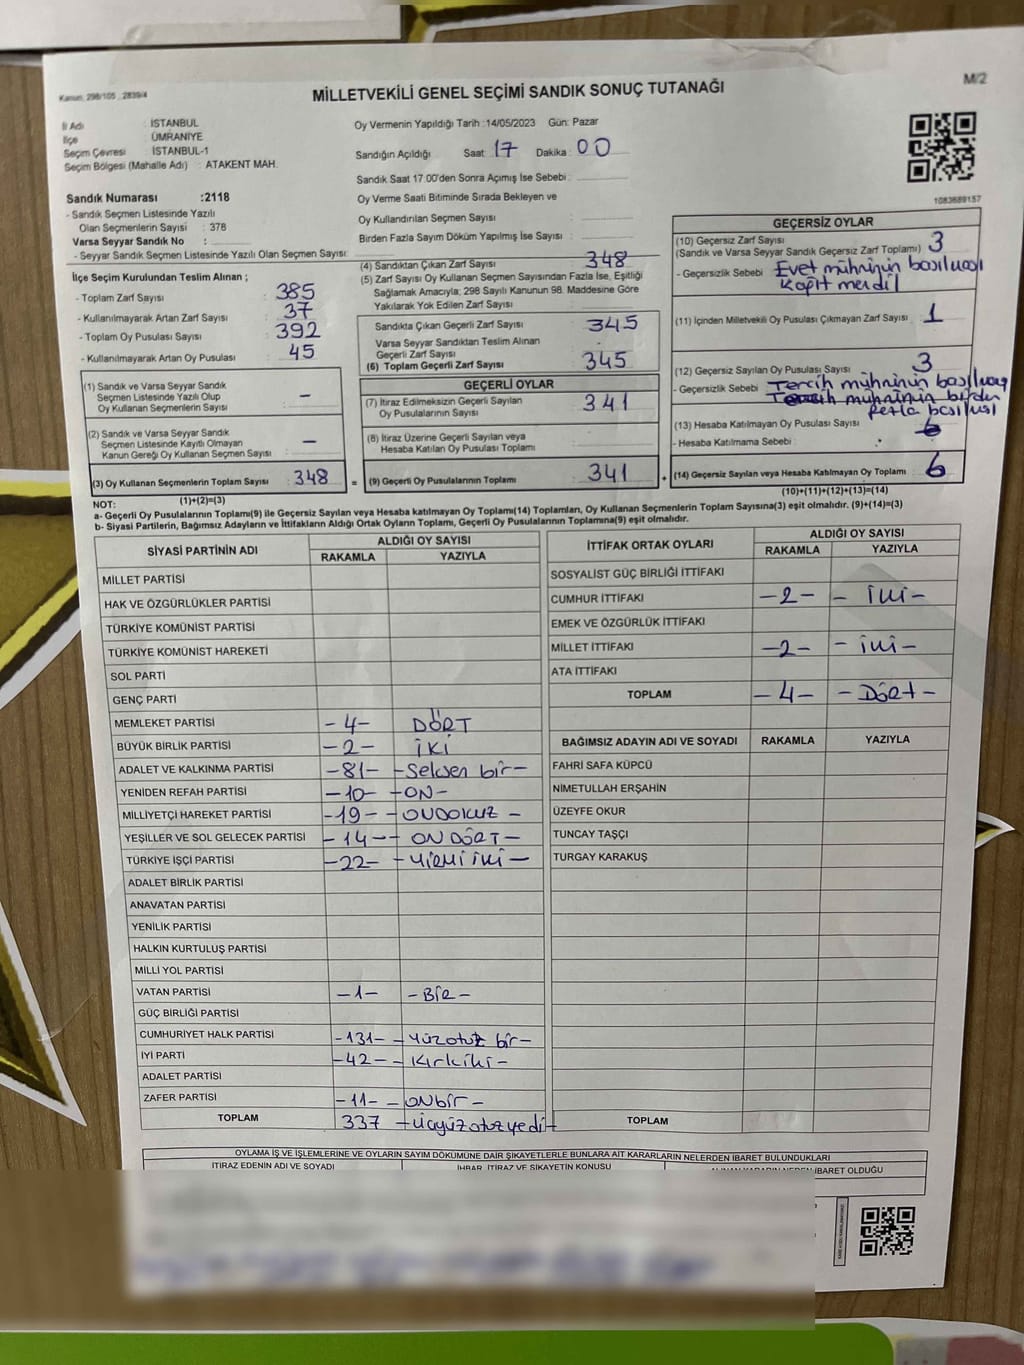 Kanun, 298/105 , 2839/4
MİLLETVEKİLİ GENEL SEÇİMİ SANDIK SONUÇ TUTANAĞI
M/2
İl Adı : İSTANBUL
İlçe : ÜMRANİYE
Seçim Çevresi : İSTANBUL-1
Seçim Bölgesi (Mahalle Adı) : ATAKENT MAH.
Oy Vermenin Yapıldığı Tarih :14/05/2023 Gün: Pazar
Sandığın Açıldığı Saat : 17 Dakika : 00
Sandık Saat 17.00'den Sonra Açımış İse Sebebi :
Sandık Numarası :2118
- Sandık Seçmen Listesinde Yazılı
Olan Seçmenlerin Sayısı : 378
Varsa Seyyar Sandık No :
- Seyyar Sandık Seçmen Listesinde Yazılı Olan Seçmen Sayısı :
Oy Verme Saati Bitiminde Sırada Bekleyen ve
Oy Kullandırılan Seçmen Sayısı :
Birden Fazla Sayım Döküm Yapılmış İse Sayısı :
1083689157
İlçe Seçim Kurulundan Teslim Alınan ;
- Toplam Zarf Sayısı : 385
- Kullanılmayarak Artan Zarf Sayısı : 37
- Toplam Oy Pusulası Sayısı : 392
- Kullanılmayarak Artan Oy Pusulası : 45
(1) Sandık ve Varsa Seyyar Sandık
Seçmen Listesinde Yazılı Olup
Oy Kullanan Seçmenlerin Sayısı : –
(2) Sandık ve Varsa Seyyar Sandık
Seçmen Listesinde Kayıtlı Olmayan
Kanun Gereği Oy Kullanan Seçmen Sayısı : –
(3) Oy Kullanan Seçmenlerin Toplam Sayısı : 348 =
(1)+(2)=(3)
(4) Sandıktan Çıkan Zarf Sayısı : 348
(5) Zarf Sayısı Oy Kullanan Seçmen Sayısından Fazla İse, Eşitliği
Sağlamak Amacıyla; 298 Sayılı Kanunun 98. Maddesine Göre
Yakılarak Yok Edilen Zarf Sayısı :
Sandıkta Çıkan Geçerli Zarf Sayısı : 345
Varsa Seyyar Sandıktan Teslim Alınan
Geçerli Zarf Sayısı :
(6) Toplam Geçerli Zarf Sayısı : 345
GEÇERLİ OYLAR
(7) İtiraz Edilmeksizin Geçerli Sayılan
Oy Pusulalarının Sayısı : 341
(8) İtiraz Üzerine Geçerli Sayılan veya
Hesaba Katılan Oy Pusulası Toplamı :
(9) Geçerli Oy Pusulalarının Toplamı : 341 +
GEÇERSİZ OYLAR
(10) Geçersiz Zarf Sayısı : 3
(Sandık ve Varsa Seyyar Sandık Geçersiz Zarf Toplamı)
- Geçersizlik Sebebi : Evet mührünün basılması
(11) İçinden Milletvekili Oy Pusulası Çıkmayan Zarf Sayısı : 1
(12) Geçersiz Sayılan Oy Pusulası Sayısı : 3
- Geçersizlik Sebebi : Tercih mührünün basılmaması
Tercih mührünün birden
fazla basılması
(13) Hesaba Katılmayan Oy Pusulası Sayısı : 6
- Hesaba Katılmama Sebebi :
(14) Geçersiz Sayılan veya Hesaba Katılmayan Oy Toplamı : 6
(10)+(11)+(12)+(13)=(14)
NOT:
a- Geçerli Oy Pusulalarının Toplamı(9) ile Geçersiz Sayılan veya Hesaba katılmayan Oy Toplamı(14) Toplamları, Oy Kullanan Seçmenlerin Toplam Sayısına(3) eşit olmalıdır. (9)+(14)=(3)
b- Siyasi Partilerin, Bağımsız Adayların ve İttifakların Aldığı Ortak Oyların Toplamı, Geçerli Oy Pusulalarının Toplamına(9) eşit olmalıdır.
SİYASİ PARTİNİN ADI ALDIĞI OY SAYISI
RAKAMLA YAZIYLA
MİLLET PARTİSİ
HAK VE ÖZGÜRLÜKLER PARTİSİ
TÜRKİYE KOMÜNİST PARTİSİ
TÜRKİYE KOMÜNİST HAREKETİ
SOL PARTİ
GENÇ PARTİ
MEMLEKET PARTİSİ -4- DÖRT
BÜYÜK BİRLİK PARTİSİ -2- İKİ
ADALET VE KALKINMA PARTİSİ -81- -Seksen bir-
YENİDEN REFAH PARTİSİ -10- -ON-
MİLLİYETÇİ HAREKET PARTİSİ -19- -ONDOKUZ-
YEŞİLLER VE SOL GELECEK PARTİSİ -14- -ON DÖRT-
TÜRKİYE İŞÇİ PARTİSİ -22- -YİRMİ İKİ-
ADALET BİRLİK PARTİSİ
ANAVATAN PARTİSİ
YENİLİK PARTİSİ
HALKIN KURTULUŞ PARTİSİ
MİLLİ YOL PARTİSİ
VATAN PARTİSİ -1- -BİR-
GÜÇ BİRLİĞİ PARTİSİ
CUMHURİYET HALK PARTİSİ -131- -Yüzotuz bir-
İYİ PARTİ -42- -Kırkiki-
ADALET PARTİSİ
ZAFER PARTİSİ -11- -ONbir-
TOPLAM 337 -Üçyüzotuzyedi-
İTTİFAK ORTAK OYLARI ALDIĞI OY SAYISI
RAKAMLA YAZIYLA
SOSYALİST GÜÇ BİRLİĞİ İTTİFAKI
CUMHUR İTTİFAKI -2- -İKİ-
EMEK VE ÖZGÜRLÜK İTTİFAKI
MİLLET İTTİFAKI -2- -İKİ-
ATA İTTİFAKI
TOPLAM -4- -Dört-
BAĞIMSIZ ADAYIN ADI VE SOYADI RAKAMLA YAZIYLA
FAHRİ SAFA KÜPCÜ
NİMETULLAH ERŞAHİN
ÜZEYFE OKUR
TUNCAY TAŞÇI
TURGAY KARAKUŞ
TOPLAM
OYLAMA İŞ VE İŞLEMLERİNE VE OYLARIN SAYIM DÖKÜMÜNE DAİR ŞİKAYETLERLE BUNLARA AİT KARARLARIN NELERDEN İBARET BULUNDUKLARI
İTİRAZ EDENİN ADI VE SOYADI İHBAR, İTİRAZ VE ŞİKAYETİN KONUSU ALINAN KARARIN NEDEN İBARET OLDUĞU